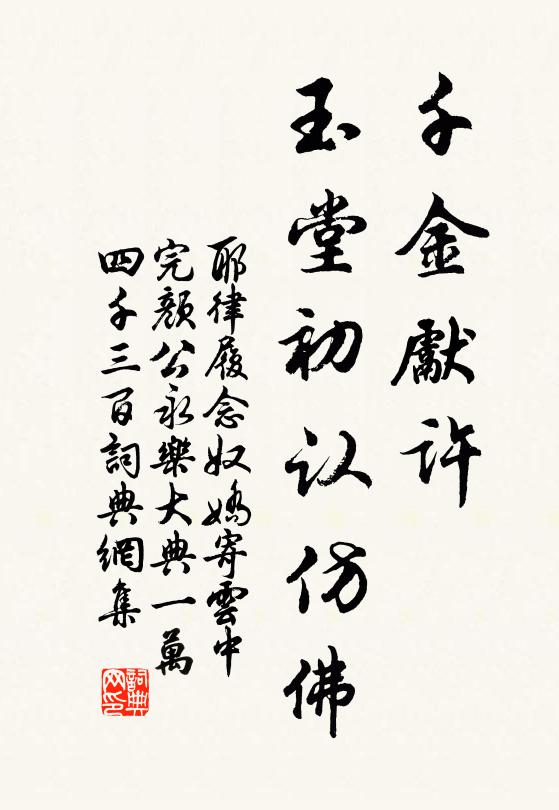 千金獻許
玉堂初认仿佛
耶律履念奴嬌寄雲中
完顏公永樂大典一萬
四千三百詞典網集
詞典网印